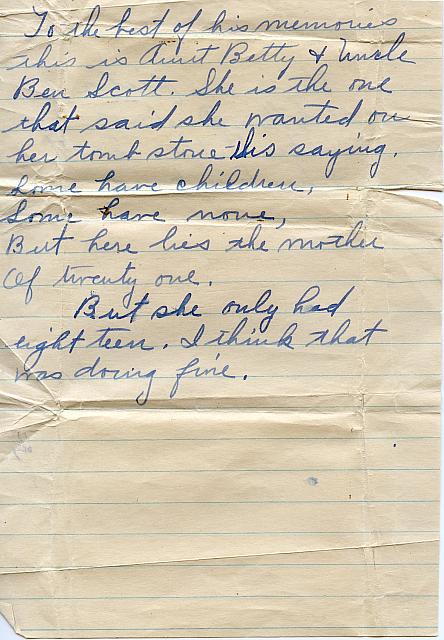 To the best of his memories
this is Aunt Betty & Uncle
Ben Scott. She is the one
that said she wanted on
her tomb stone this saying.
Some have children,
Some have none,
But here lies the mother
Of twenty one.
But she only had
eight teen. I think that
was doing fine.